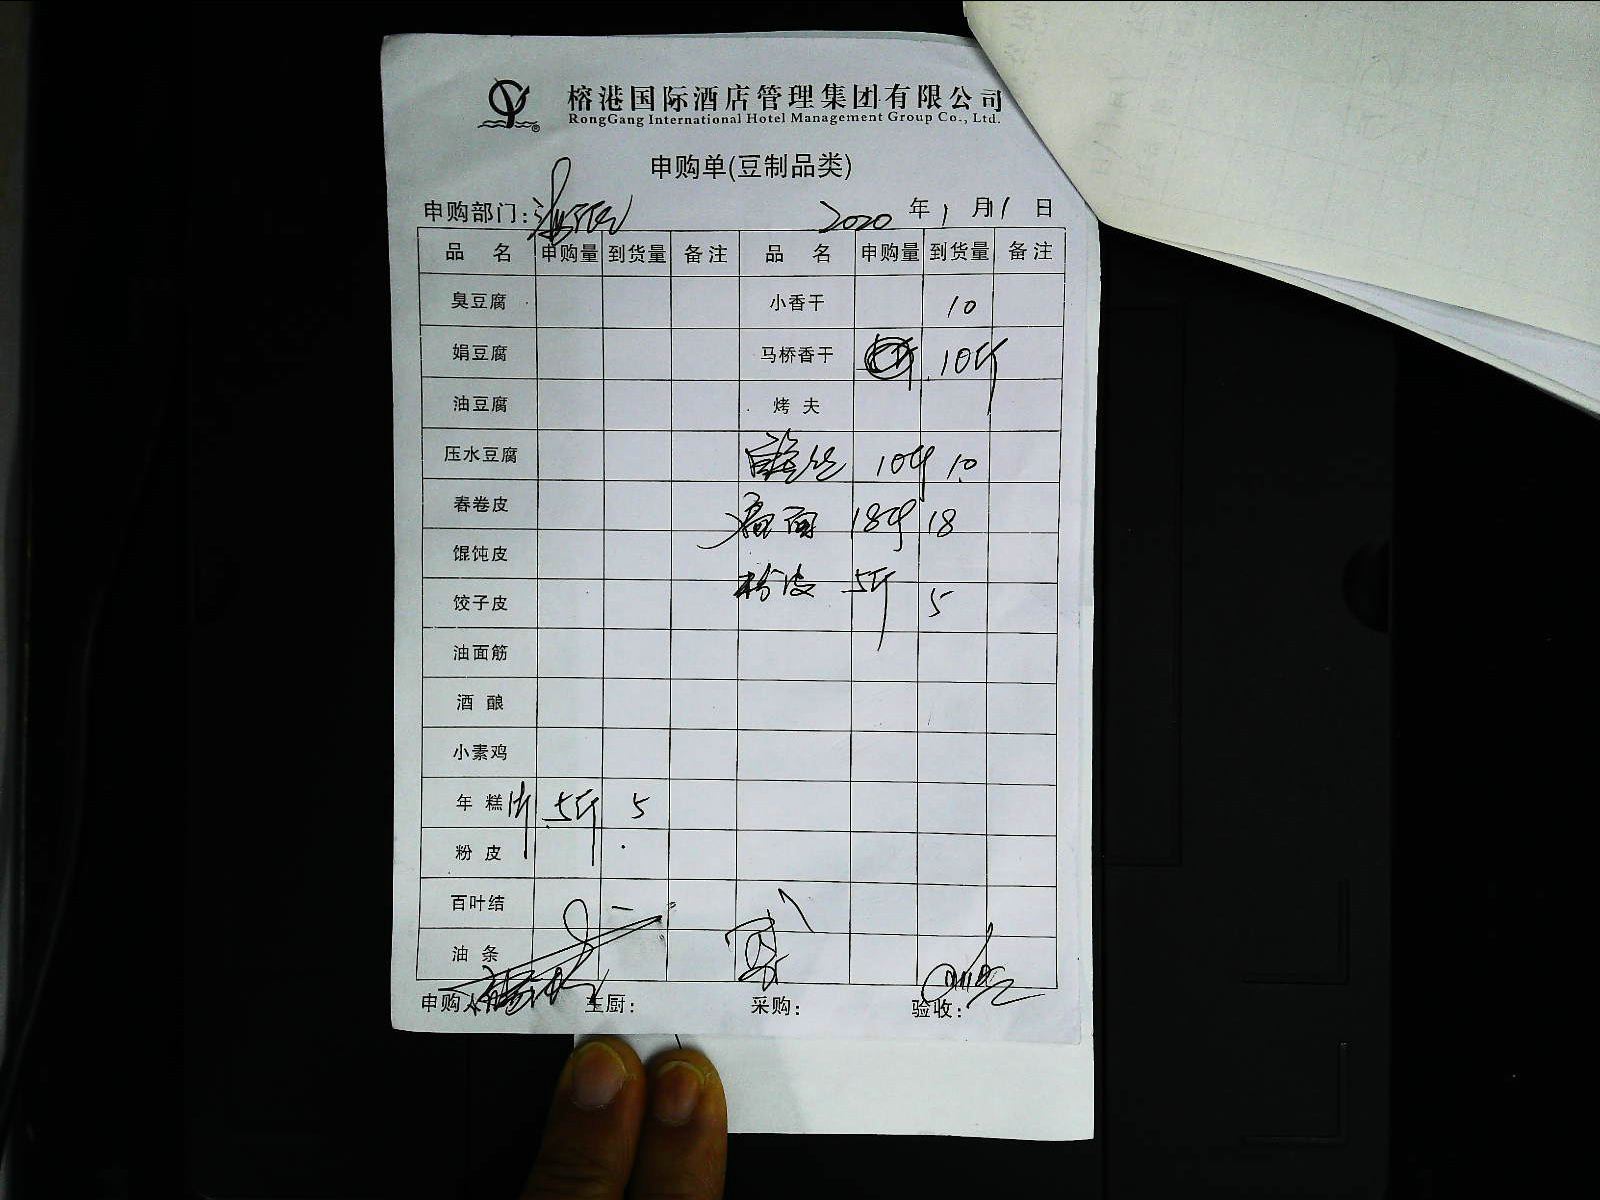 榕港国际酒店管理集团有限公司
RongGang International Hotel Management Group Co., Ltd.
申购单(豆制品类)
申购部门: 2020 年 1 月 1 日
品 名 申购量 到货量 备注 品 名 申购量 到货量 备注
臭豆腐 小香干 10
娟豆腐 马桥香干 10斤
油豆腐 烤 夫
压水豆腐 10斤 10
春卷皮 面 18斤 18
馄饨皮
饺子皮 粉皮 5斤 5
油面筋
酒 酿
小素鸡
年 糕片 5斤 5
粉 皮
百叶结
油 条
申购人 主厨: 采购: 验收: